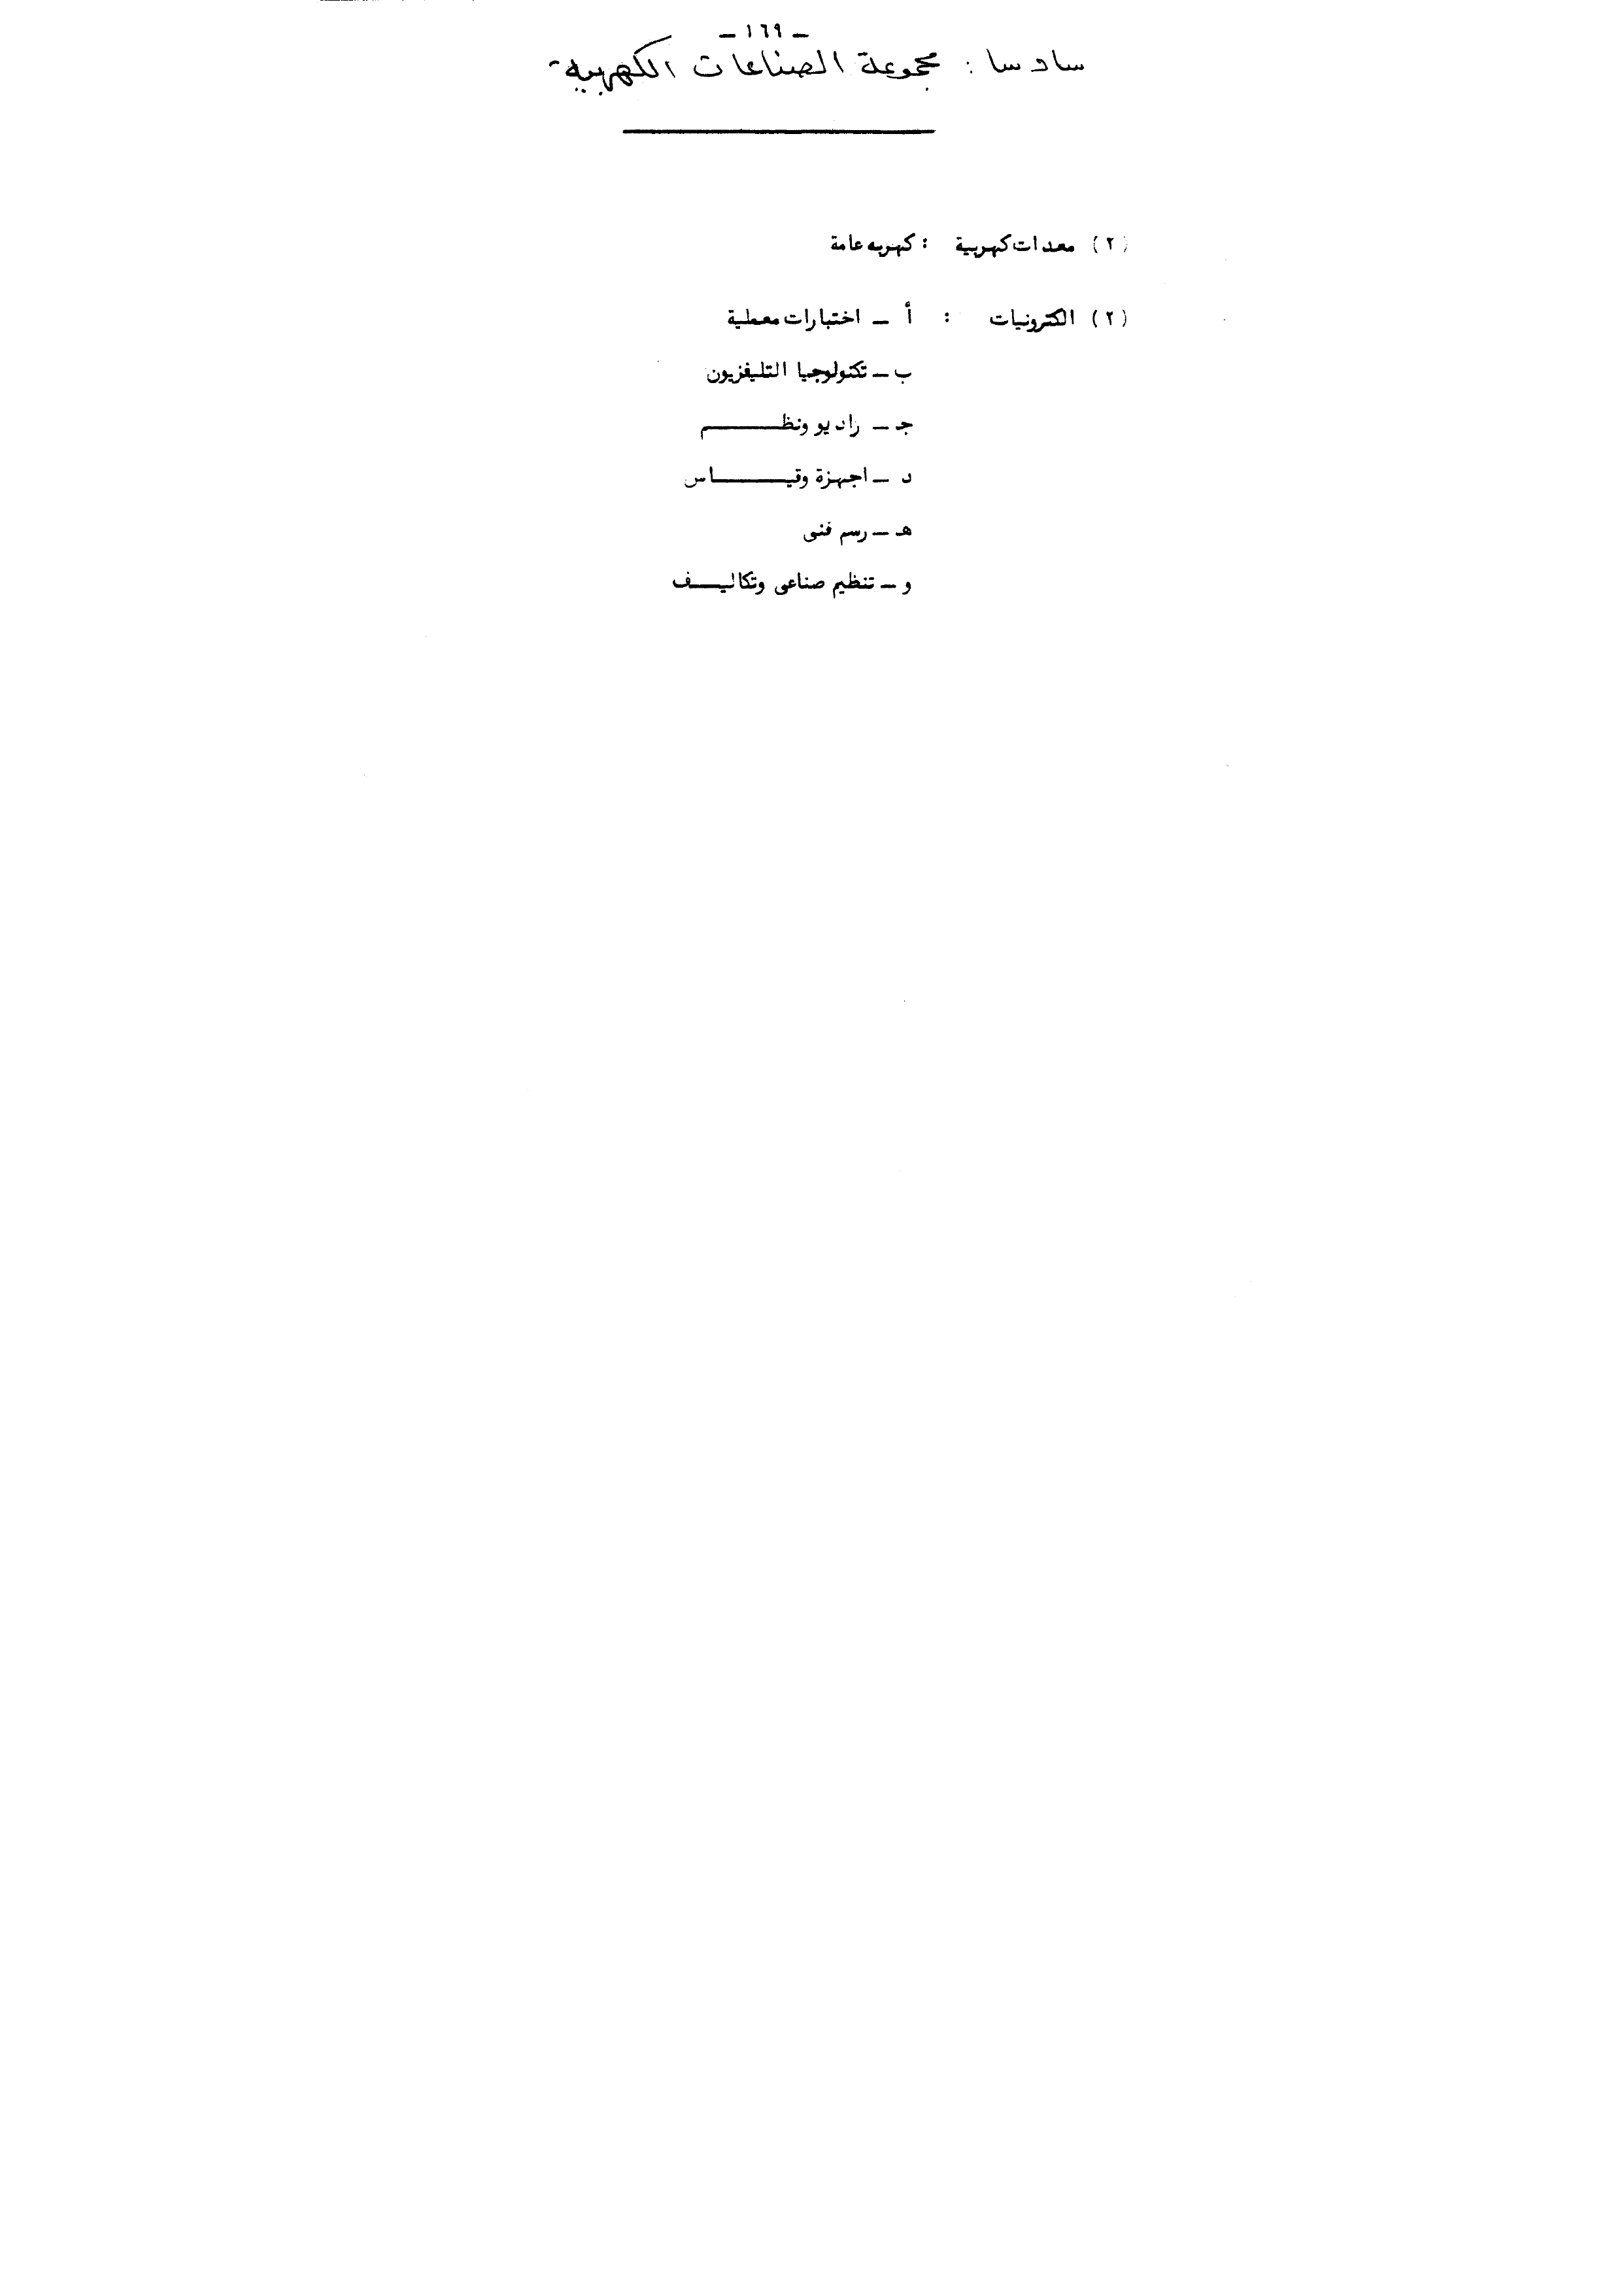 – ١٦٩ –
سادسا : مجموعة الصناعات الكهربية
(٢) معدات كهربية : كهربه عامة
(٢) الكترونيات : أ – اختبارات معملية
ب – تكنولوجيا التليفزيون
جـ – راديو ونظم
د – اجهزة وقياس
هـ – رسم فنى
و – تنظيم صناعى وتكاليف